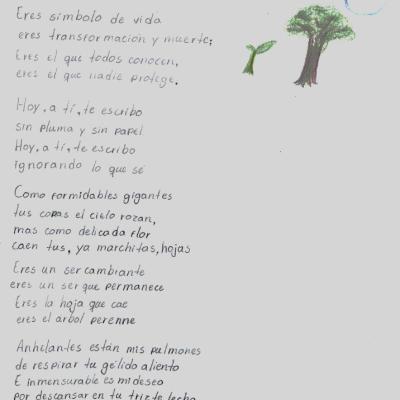 Eres símbolo de vida
eres transformación y muerte;
Eres el que todos conocen,
eres el que nadie protege.
Hoy, a tí, te escribo
sin pluma y sin papel
Hoy, a tí, te escribo
ignorando lo que sé
Como formidables gigantes
tus copas el cielo rozan,
mas como delicada flor
caen tus, ya marchitas, hojas
Eres un ser cambiante
eres un ser que permanece
Eres la hoja que cae
eres el árbol perenne
Anhelantes están mis pulmones
de respirar tu gélido aliento
E inmensurable es mi deseo
por descansar en tu triste lecho